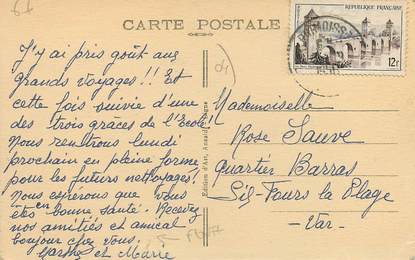 CARTE POSTALE
RÉPUBLIQUE FRANÇAISE
12F
J'y ai pris goût aux
grands voyages!! Et
cette fois suivie d'une
des trois grâces de l'Ecole!
Nous rentrons lundi
prochain en pleine forme
pour les futurs nettoyages!
Nous espérons que vous
êtes en bonne santé. Recevez
nos amitiés et amical
bonjour chez vous.
Marthe et Marie
Edition d'Art,
Mademoiselle
Rose Sauve
Quartier Barras
Six-Fours la Plage
-Var-